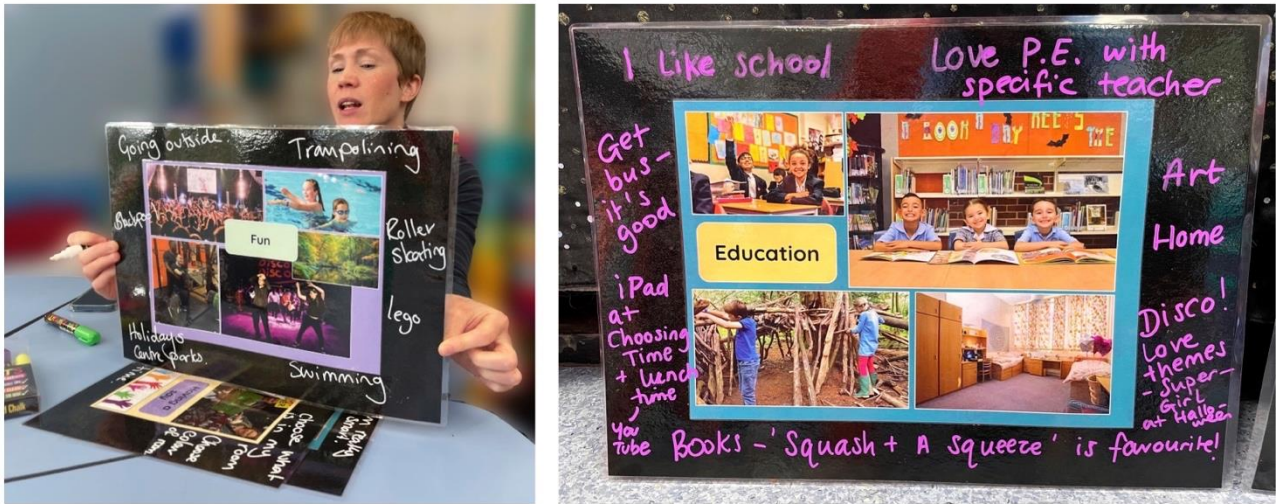 Going outside
Trampolining
Fun
Roller
skating
lego
Holidays
Swimming
choose what
is in my
room
I Like school
Love P.E. with
specific teacher
Get
bus-
it's
good
Education
Art
Home
iPad
at
Choosing
Time
+ lunch
time
You
Tube
Disco!
Love
themes
-Super-
Girl
at Hallo-
ween
Books - 'Squash + A squeeze' is favourite!